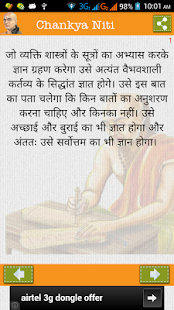 10:01 AM
Chankya Niti
1
जो व्यक्ति शास्त्रों के सूत्रों का अभ्यास करके
ज्ञान ग्रहण करेगा उसे अत्यंत वैभवशाली
कर्तव्य के सिद्धांत ज्ञात होगे। उसे इस बात
का पता चलेगा कि किन बातों का अनुशरण
करना चाहिए और किनका नहीं। उसे
अच्छाई और बुराई का भी ज्ञात होगा और
अंततः उसे सर्वोत्तम का भी ज्ञान होगा।
airtel 3g dongle offer